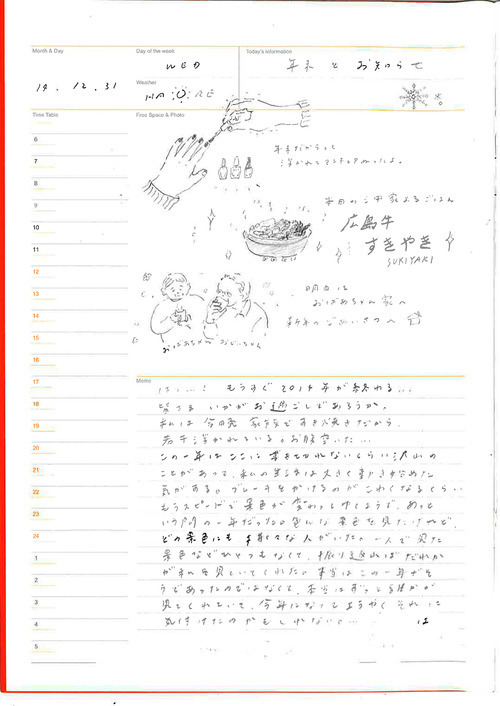 Month & Day
Day of the week
Today's information
WED
年末とお知らせ
14.12.31
Weather
HARE
Time Table
Free Space & Photo
年末だからって
浮かれてマニキュアぬったよ。
本日の中家よるごはん
広島牛
すきやき
SUKIYAKI
明日は
おばあちゃん家へ
新年のごあいさつへ
おばあちゃん おじいちゃん
6
7
8
9
10
11
12
13
14
15
16
17
18
19
20
21
22
23
24
1
2
3
4
5
Memo
は…! もうすぐ2014年が終わる…
皆さま いかがお過ごしであろうか。
私は今日 家族ですき焼きだから、
若干浮かれている。お腹空いた…
この一年はここに書ききれないくらい沢山の
ことがあって、私の生活は大きく動き始めた
気がする。ブレーキをかけるのがこわくなるくらい
もうスピードで景色が変わってゆくようで、あっと
いう間の一年だった。色んな景色を見たけれど、
どの景色にも 人がいた。一人で見た
景色などひとつもなくて、振り返ればだれか
が私を見ていてくれた。本当はこの一年がそ
うであったのではなくて、本当はずっと誰かが
見てくれていて、今年になってようやくそれに
気付けたのかもしれない。…